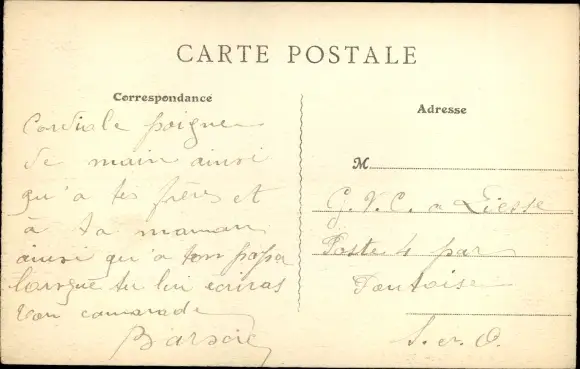 CARTE POSTALE
Correspondance
Cordiale poignée
de main ainsi
qu'a tes frères et
à ta maman
ainsi qu'a ton papa
lorsque tu lui écriras
ton camarade
Adresse
M
G.V.C. a Liesse
Poste 4 par
Pontoise
S. et O.